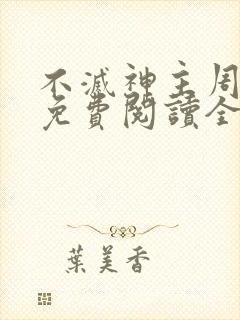 不滅神主周
免費閱讀全
葉美香